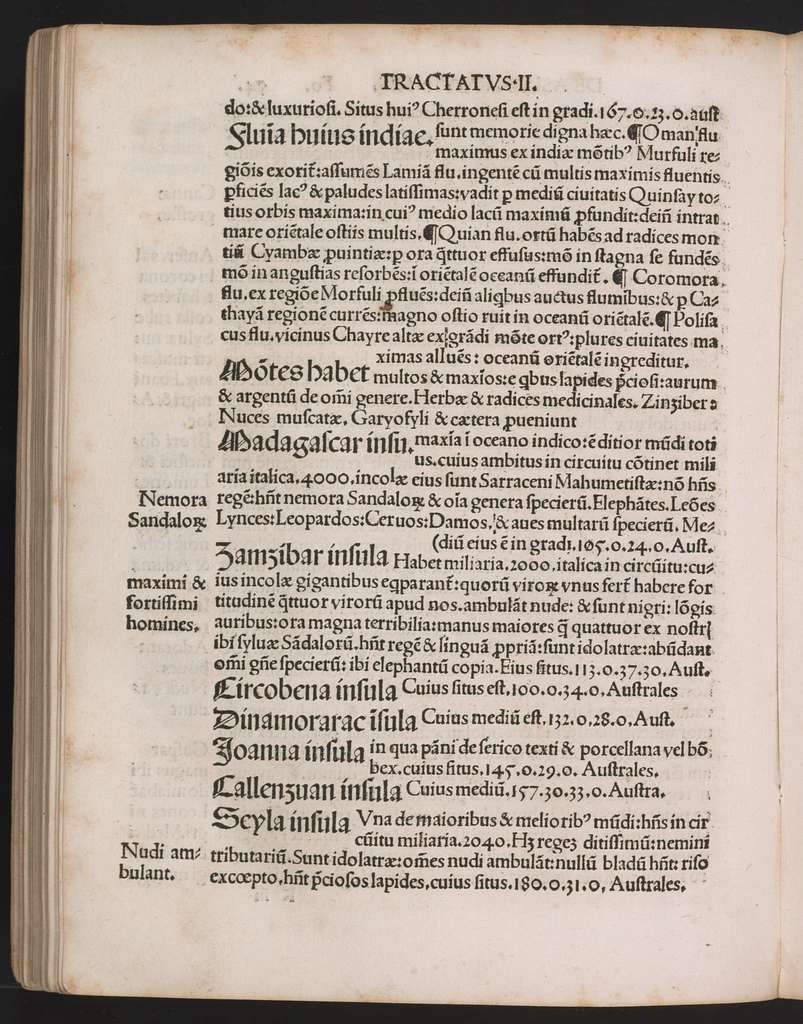 TRACTATVS·II.
do:&luxuriosi. Situs hui⁹ Cherronesi est in gradi.167.0.23.0.aust
Fluīa huius indiae. sunt memorie digna hæc.¶Oman flu
maximus ex indiæ mōtib⁹ Murfuli re⸗
giōis exorit̄:assumēs Lamiā flu.ingentē cū multis maximis fluentis
ꝓficiēs lac⁹ & paludes latissimas:vadit ꝑ mediū ciuitatis Quinsay to⸗
tius orbis maxima:in cui⁹ medio lacū maximū ꝓfundit:deiñ intrat
mare oriētale ostiis multis.¶Quian flu.ortū habēs ad radices mon
tiū Cyambæ ꝓuintiæ:ꝑ ora q̄ttuor effusus:mō in stagna se fundēs
mō in angustias resorbēs:ī oriētalē oceanū effundit̄.¶ Coromora
flu.ex regiōe Morfuli ꝓfluēs:deiñ aliq̄bus auctus flumībus:& ꝑ Ca⸗
thayā regionē currēs:magno ostio ruit in oceanū oriētalē.¶ Polisa
cus flu.vicinus Chayre altæ ex grādi mōte ort⁹:plures ciuitates ma
ximas alluēs: oceanū oriētalē ingreditur.
Mōtes habet multos & maxīos:e q̄bus lapides p̄ciosi:aurum
& argentū de om̄i genere.Herbæ & radices medicinales.Zinziber:
Nuces muscatæ. Garyofyli & cætera ꝓueniunt
Madagascar insu. maxīa ī oceano indico:ē ditior mūdi toti
us.cuius ambitus in circuitu cōtinet mili
aria italica.4000.incolæ eius sunt Sarraceni Mahumetistæ:nō hñs
Nemora
Sandaloꝝ
regē:hñt nemora Sandaloꝝ & oīa genera specierū.Elephātes.Leões
Lynces:Leopardos:Ceruos:Damos.& aues multarū specierū. Me⸗
(diū eius ē in gradi.105.0.24.0.Aust.
Zamzibar insula Habet miliaria.2000.italica in circūitu:cu⸗
maximi &
fortissimi
homines.
ius incolæ gigantibus eq̄parant̄:quorū viroꝝ vnus fert̄ habere for
titudinē q̄ttuor virorū apud nos.ambulāt nude: & sunt nigri: lōgis
auribus:ora magna terribilia:manus maiores q̄ quattuor ex nostri
ibi syluæ Sādalorū.hñt regē & linguā ꝓpriā:sunt idolatræ:abūdant
om̄i gñe specierū: ibi elephantū copia.Eius situs.113.0.37.30.Aust.
Circobena insula Cuius situs est.100.0.34.0.Australes
Dinamorarac īsula Cuius mediū est.132.0.28.0.Aust.
Joanna insula in qua pāni de serico texti & porcellana vel bō
bex.cuius situs.145.0.29.0. Australes.
Callenzuan insula Cuius mediū.157.30.33.0.Austra.
Seyla insula Vna de maioribus & meliorib⁹ mūdi:hñs in cir
cūitu miliaria.2040.Hꝫ regeꝫ ditissimū:nemini
Nudi am⸗
bulant.
tributariū.Sunt idolatræ:om̄es nudi ambulāt:nullū bladū hñt: riso
excœpto.hñt p̄ciosos lapides.cuius situs.180.0.31.0. Australes.